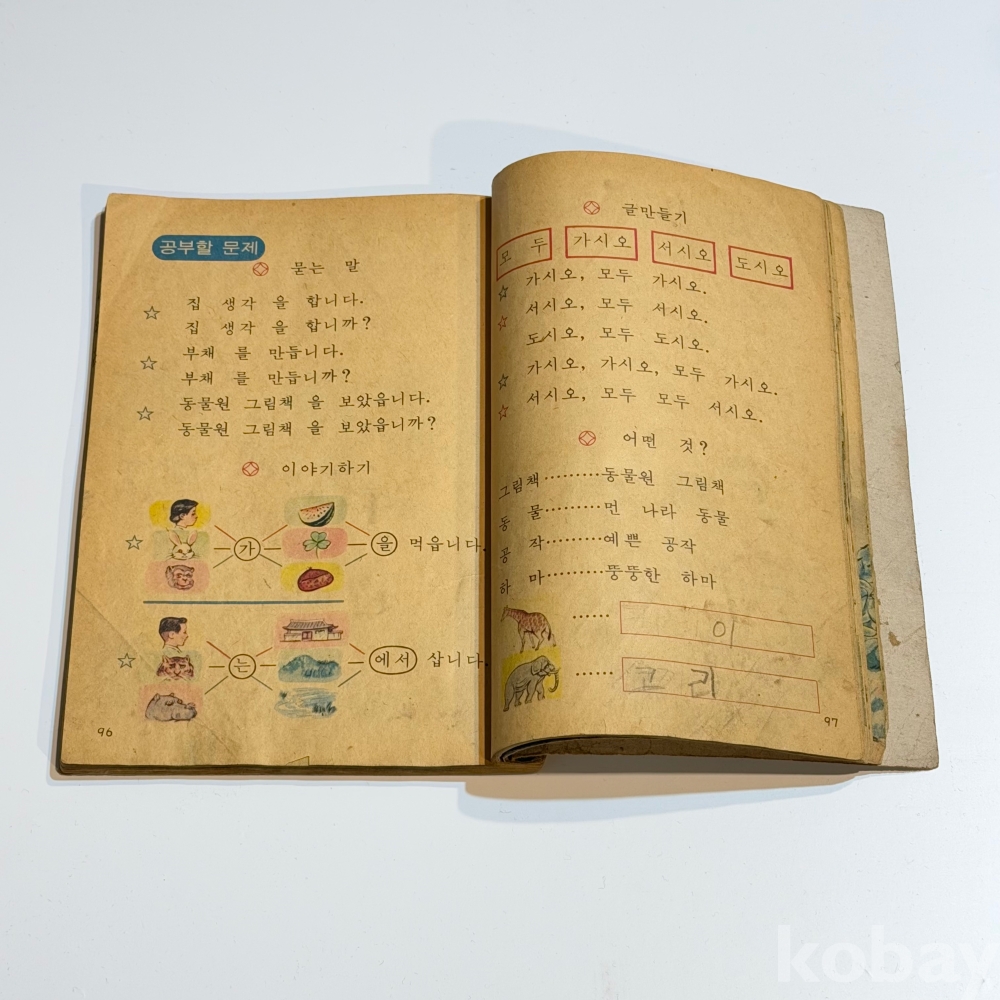 공부할 문제
묻는 말
집 생각 을 합니다.
집 생각 을 합니까?
부채 를 만듭니다.
부채 를 만듭니까?
동물원 그림책 을 보았읍니다.
동물원 그림책 을 보았읍니까?
이야기하기
가 을 먹읍니다.
는 에서 삽니다.
96
글만들기
모 두 가시오 서시오 도시오
가시오, 모두 가시오.
서시오, 모두 서시오.
도시오, 모두 도시오.
가시오, 가시오, 모두 가시오.
서시오, 모두 모두 서시오.
어떤 것?
그림책………동물원 그림책
동 물………먼 나라 동물
공 작………예쁜 공작
하 마………뚱뚱한 하마
…… 이
…… 고 리
97
kobay